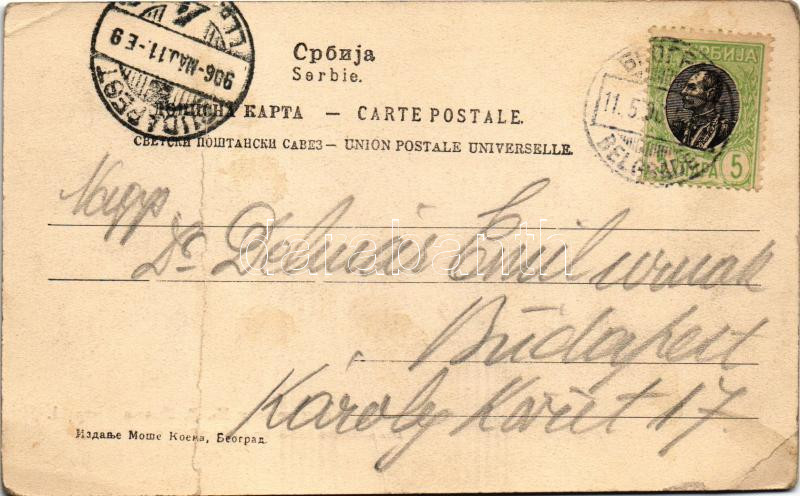 Србија
Serbie.
ДОПИСНА КАРТА — CARTE POSTALE.
СВЕТСКИ ПОШТАНСКИ САВЕЗ — UNION POSTALE UNIVERSELLE.
906 - MÁJ. 11. - E 9
BUDAPEST
BELGRADE
СРБИЈА
5
Nagy
Dr. Delmás Emil urnak
Budapest
Károly Körút 17.
Издање Моше Коена, Београд.
darabanth